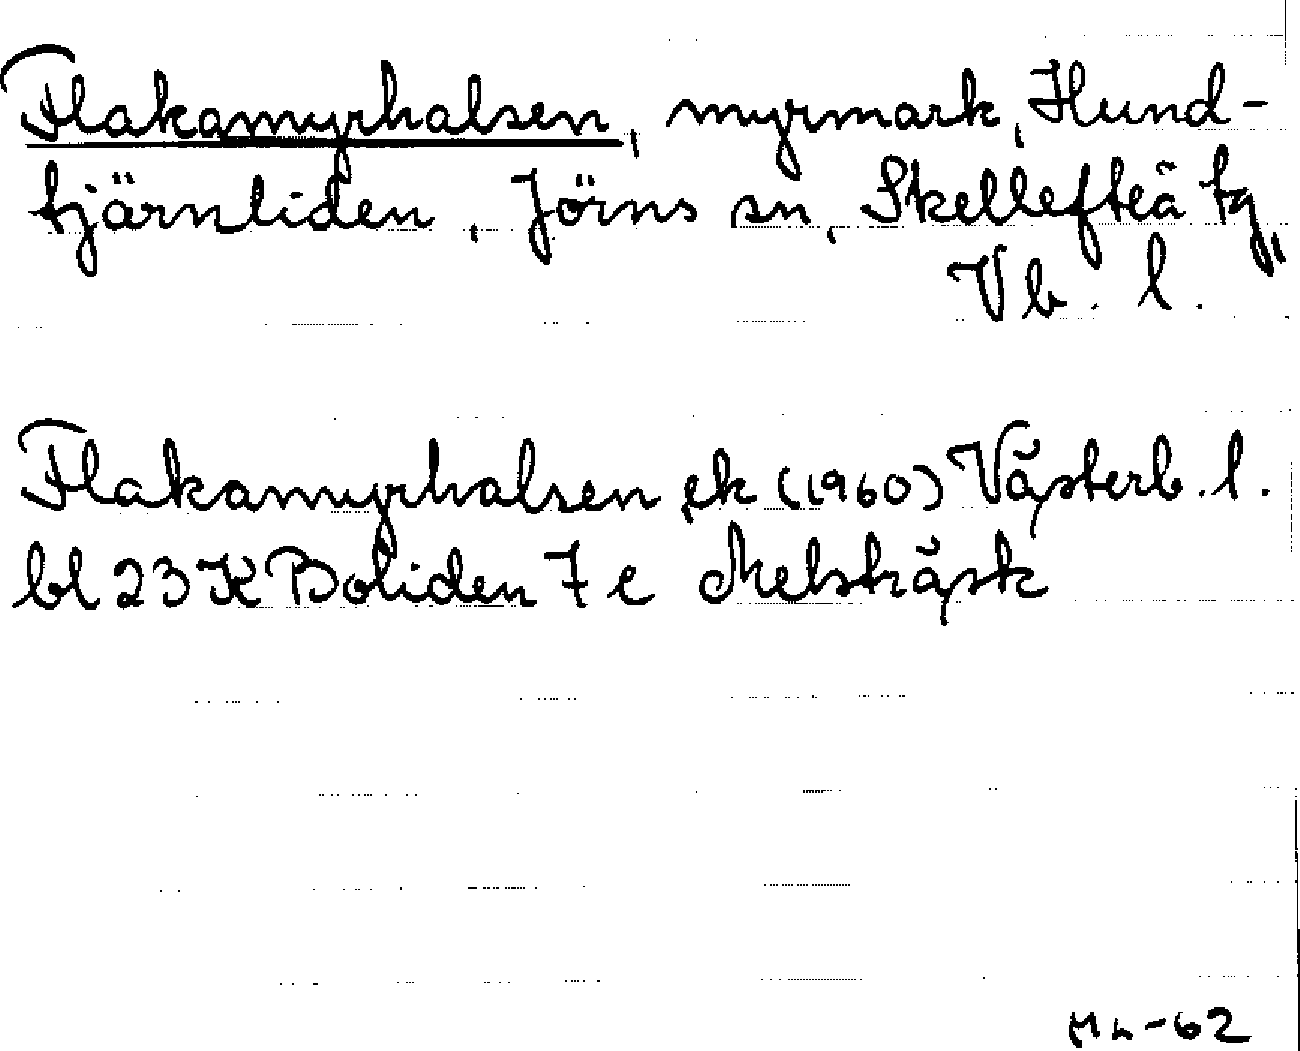 Flakamyrhalsen, myrmark, Hund-
tjärnliden, Jörns sn, Skellefteå tg,
Vb. l.
Flakamyrhalsen ek (1960) Västerb. l.
bl 23 K Boliden 7 e Mebskäsk
-62